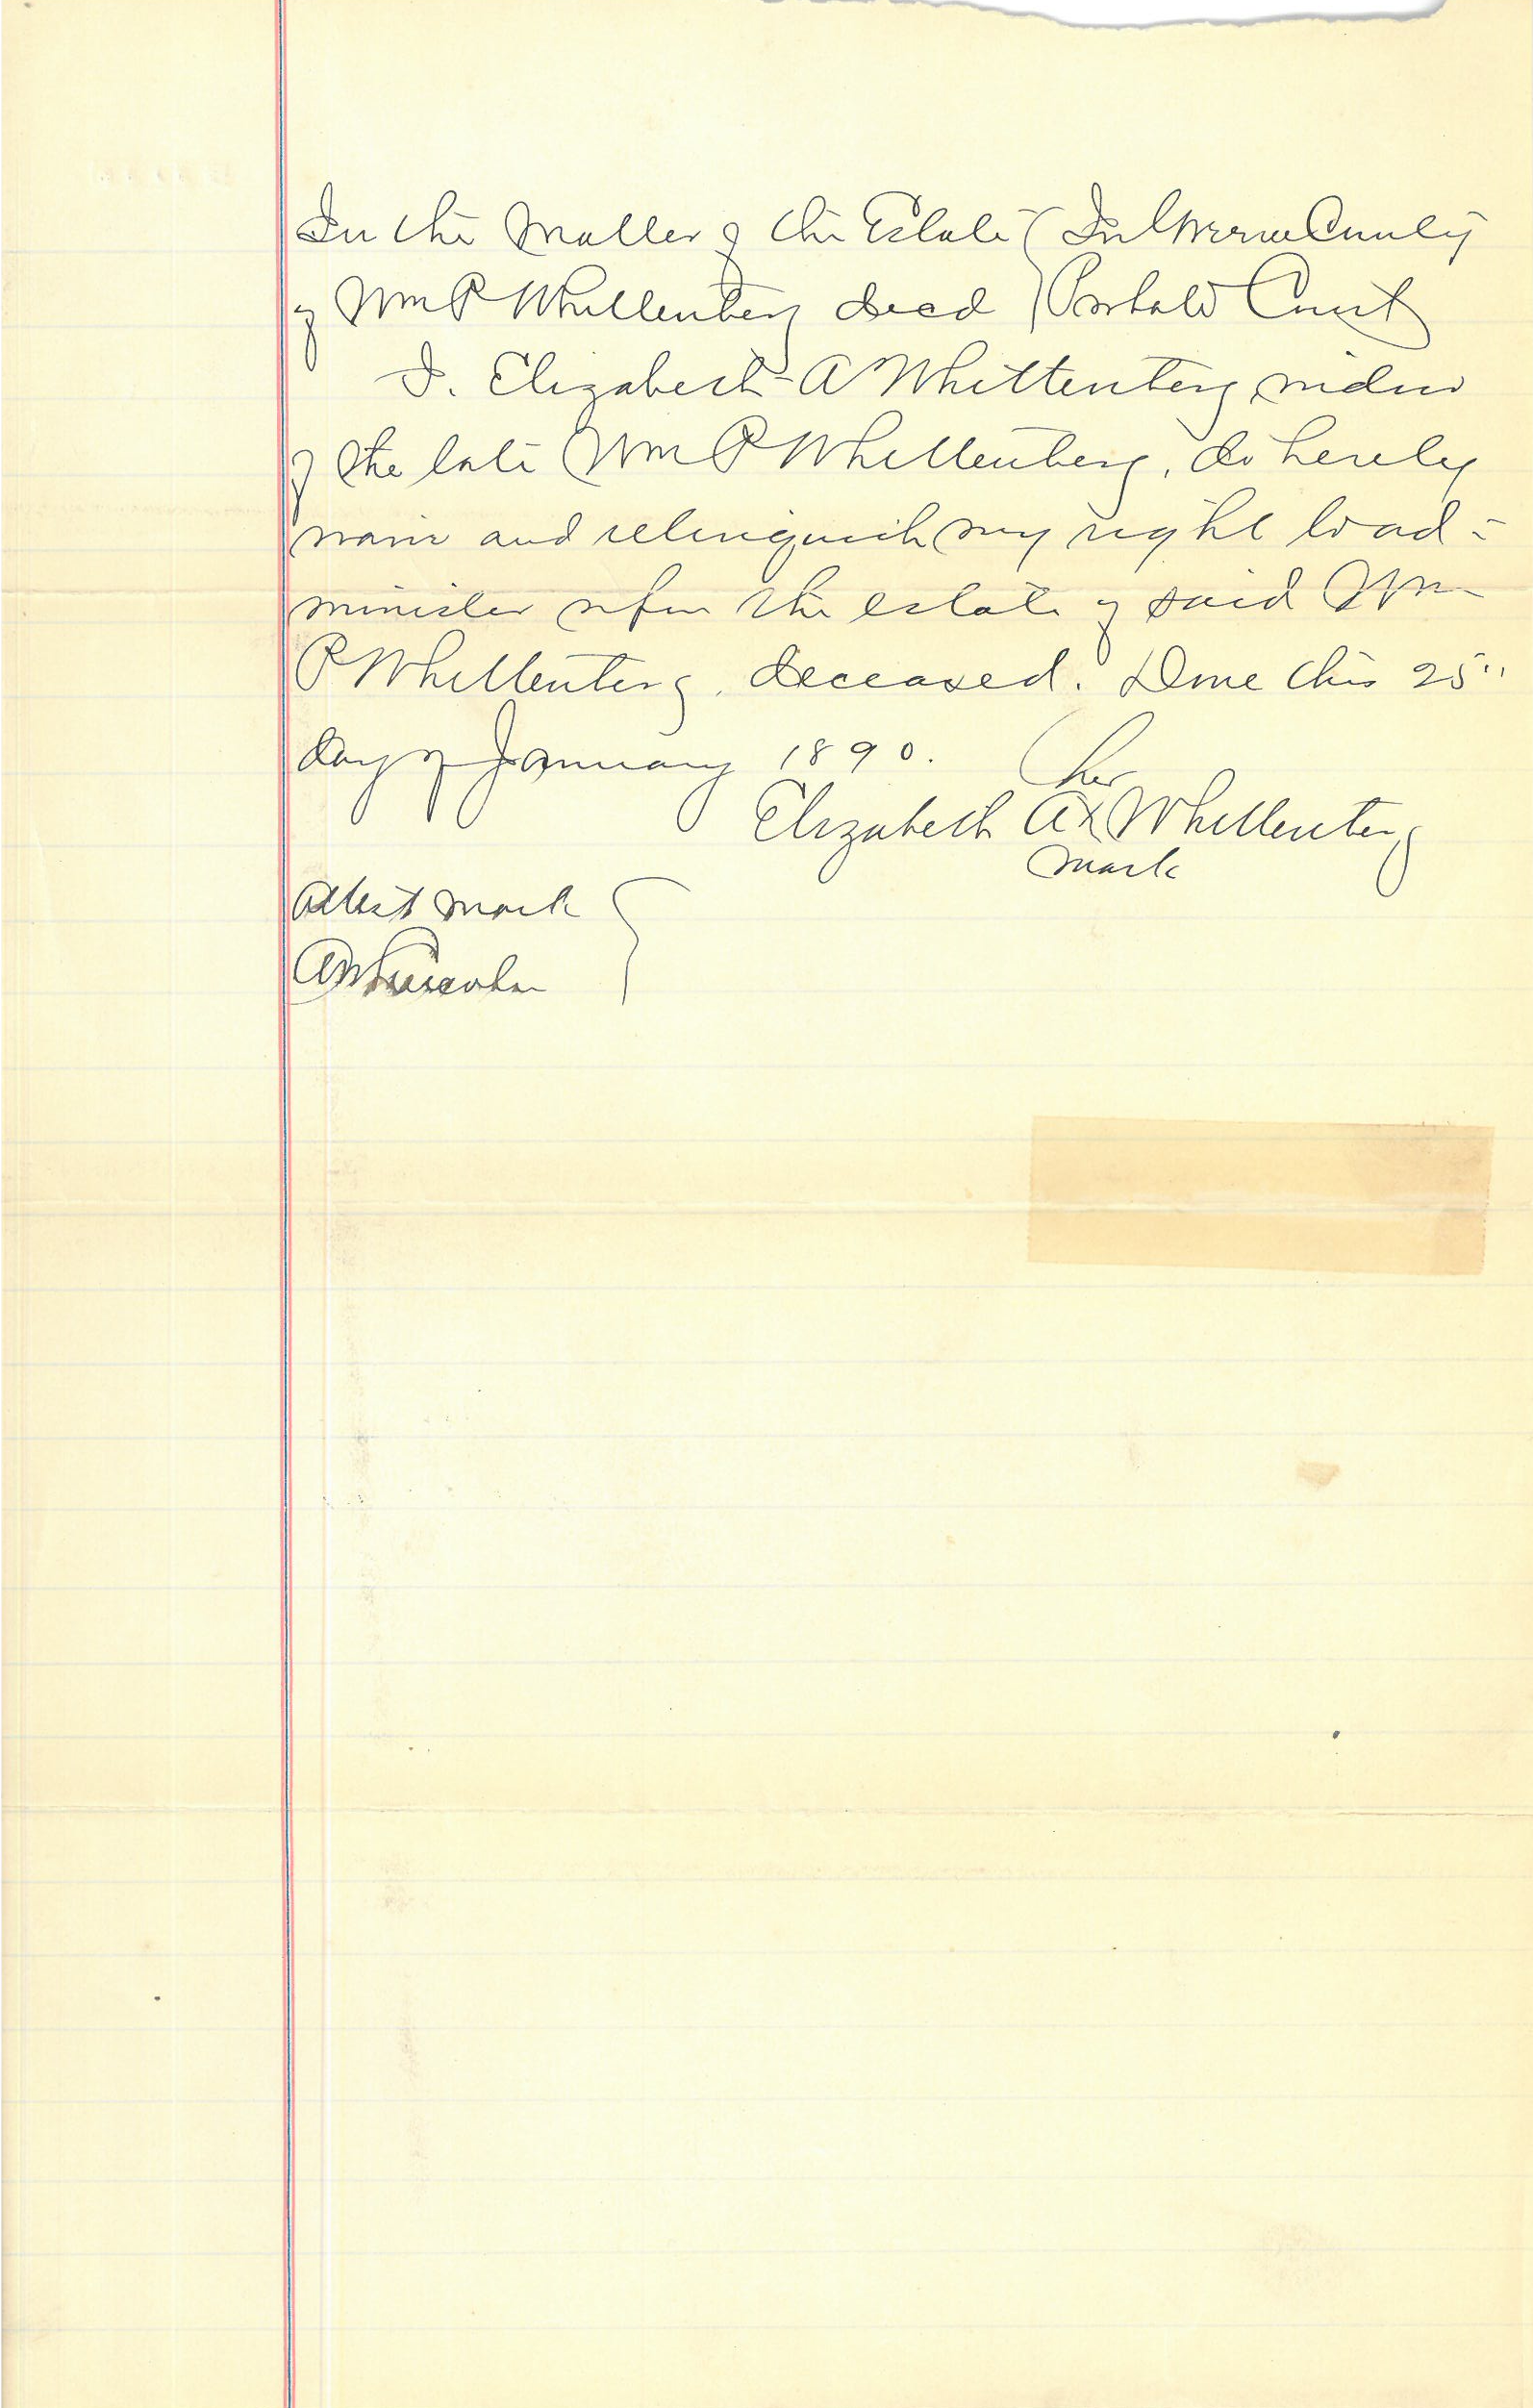 In the Matter of the Estate ( In Greene County
of Wm P Whittenberg decd ) Probate Court
I. Elizabeth A Whittenberg widow
of the late Wm P Whittenberg, do hereby
waive and relinquish my right to ad=
minister upon the estate of said Wm
P Whittenberg, deceased. Done this 25"
day of January 1890.
her
Elizabeth A X Whittenberg
mark
Attest mark